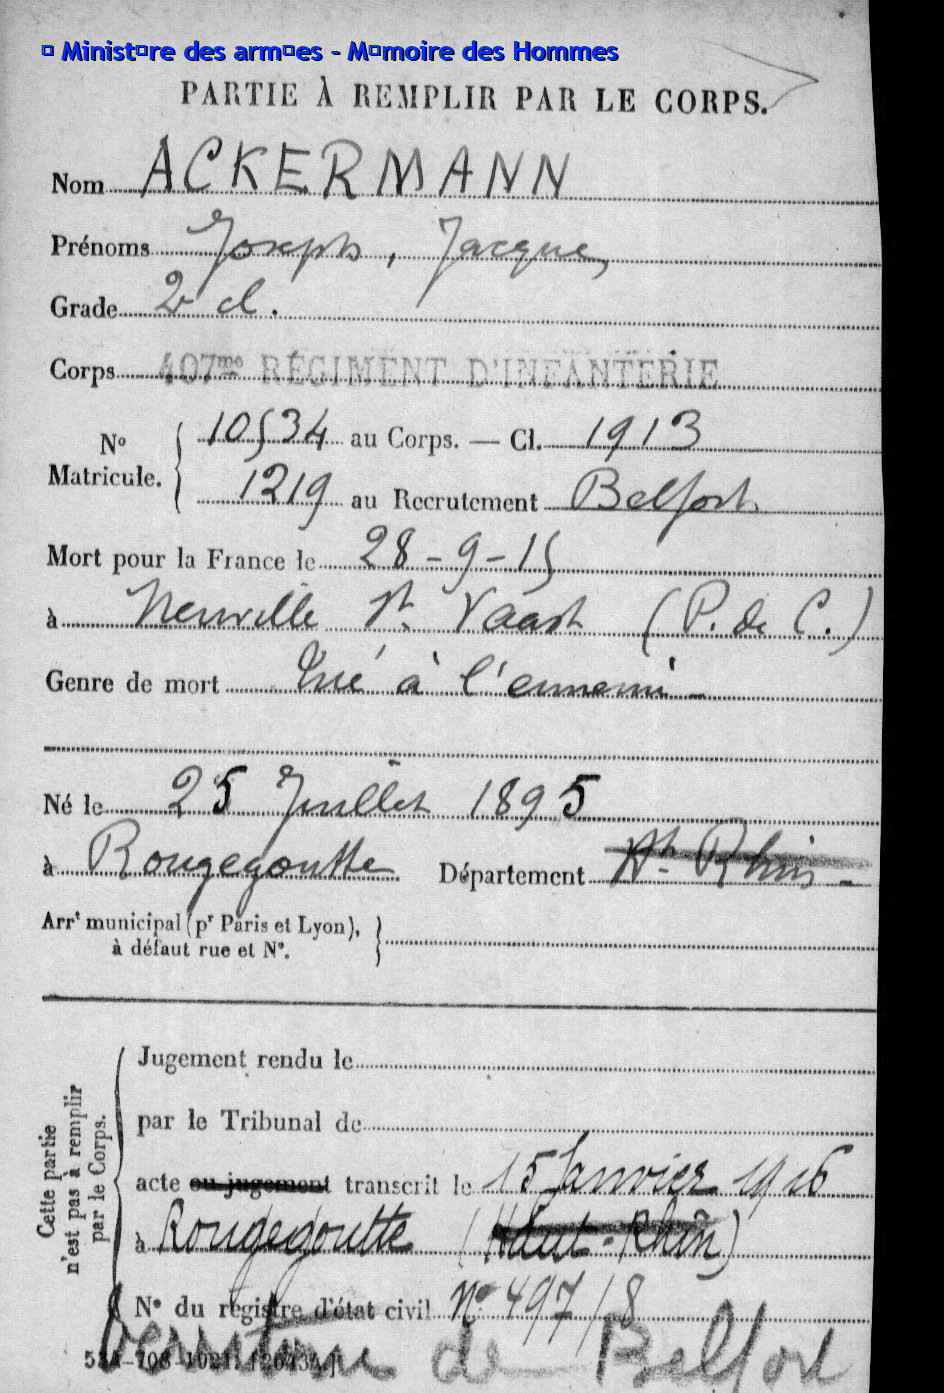 © Ministère des armées - Mémoire des Hommes
PARTIE À REMPLIR PAR LE CORPS.
Nom ACKERMANN
Prénoms Joseph, Jacque,
Grade 2e cl.
Corps 407me RÉGIMENT D'INFANTERIE
No Matricule. 10534 au Corps. — Cl. 1913
1219 au Recrutement Belfort
Mort pour la France le 28-9-15
à Neuville St. Vaast (P. de C.)
Genre de mort Tué à l'ennemi -
Né le 25 Juillet 1895
à Rougegoutte Département Ht. Rhin -
Arrt municipal (pr Paris et Lyon),
à défaut rue et No.
Cette partie
n'est pas à remplir
par le Corps.
Jugement rendu le
par le Tribunal de
acte ou jugement transcrit le 15 Janvier 1916
à Rougegoutte (Haut-Rhin)
No du registre d'état civil No 497/8
Territoire de Belfort
534-708-1921.